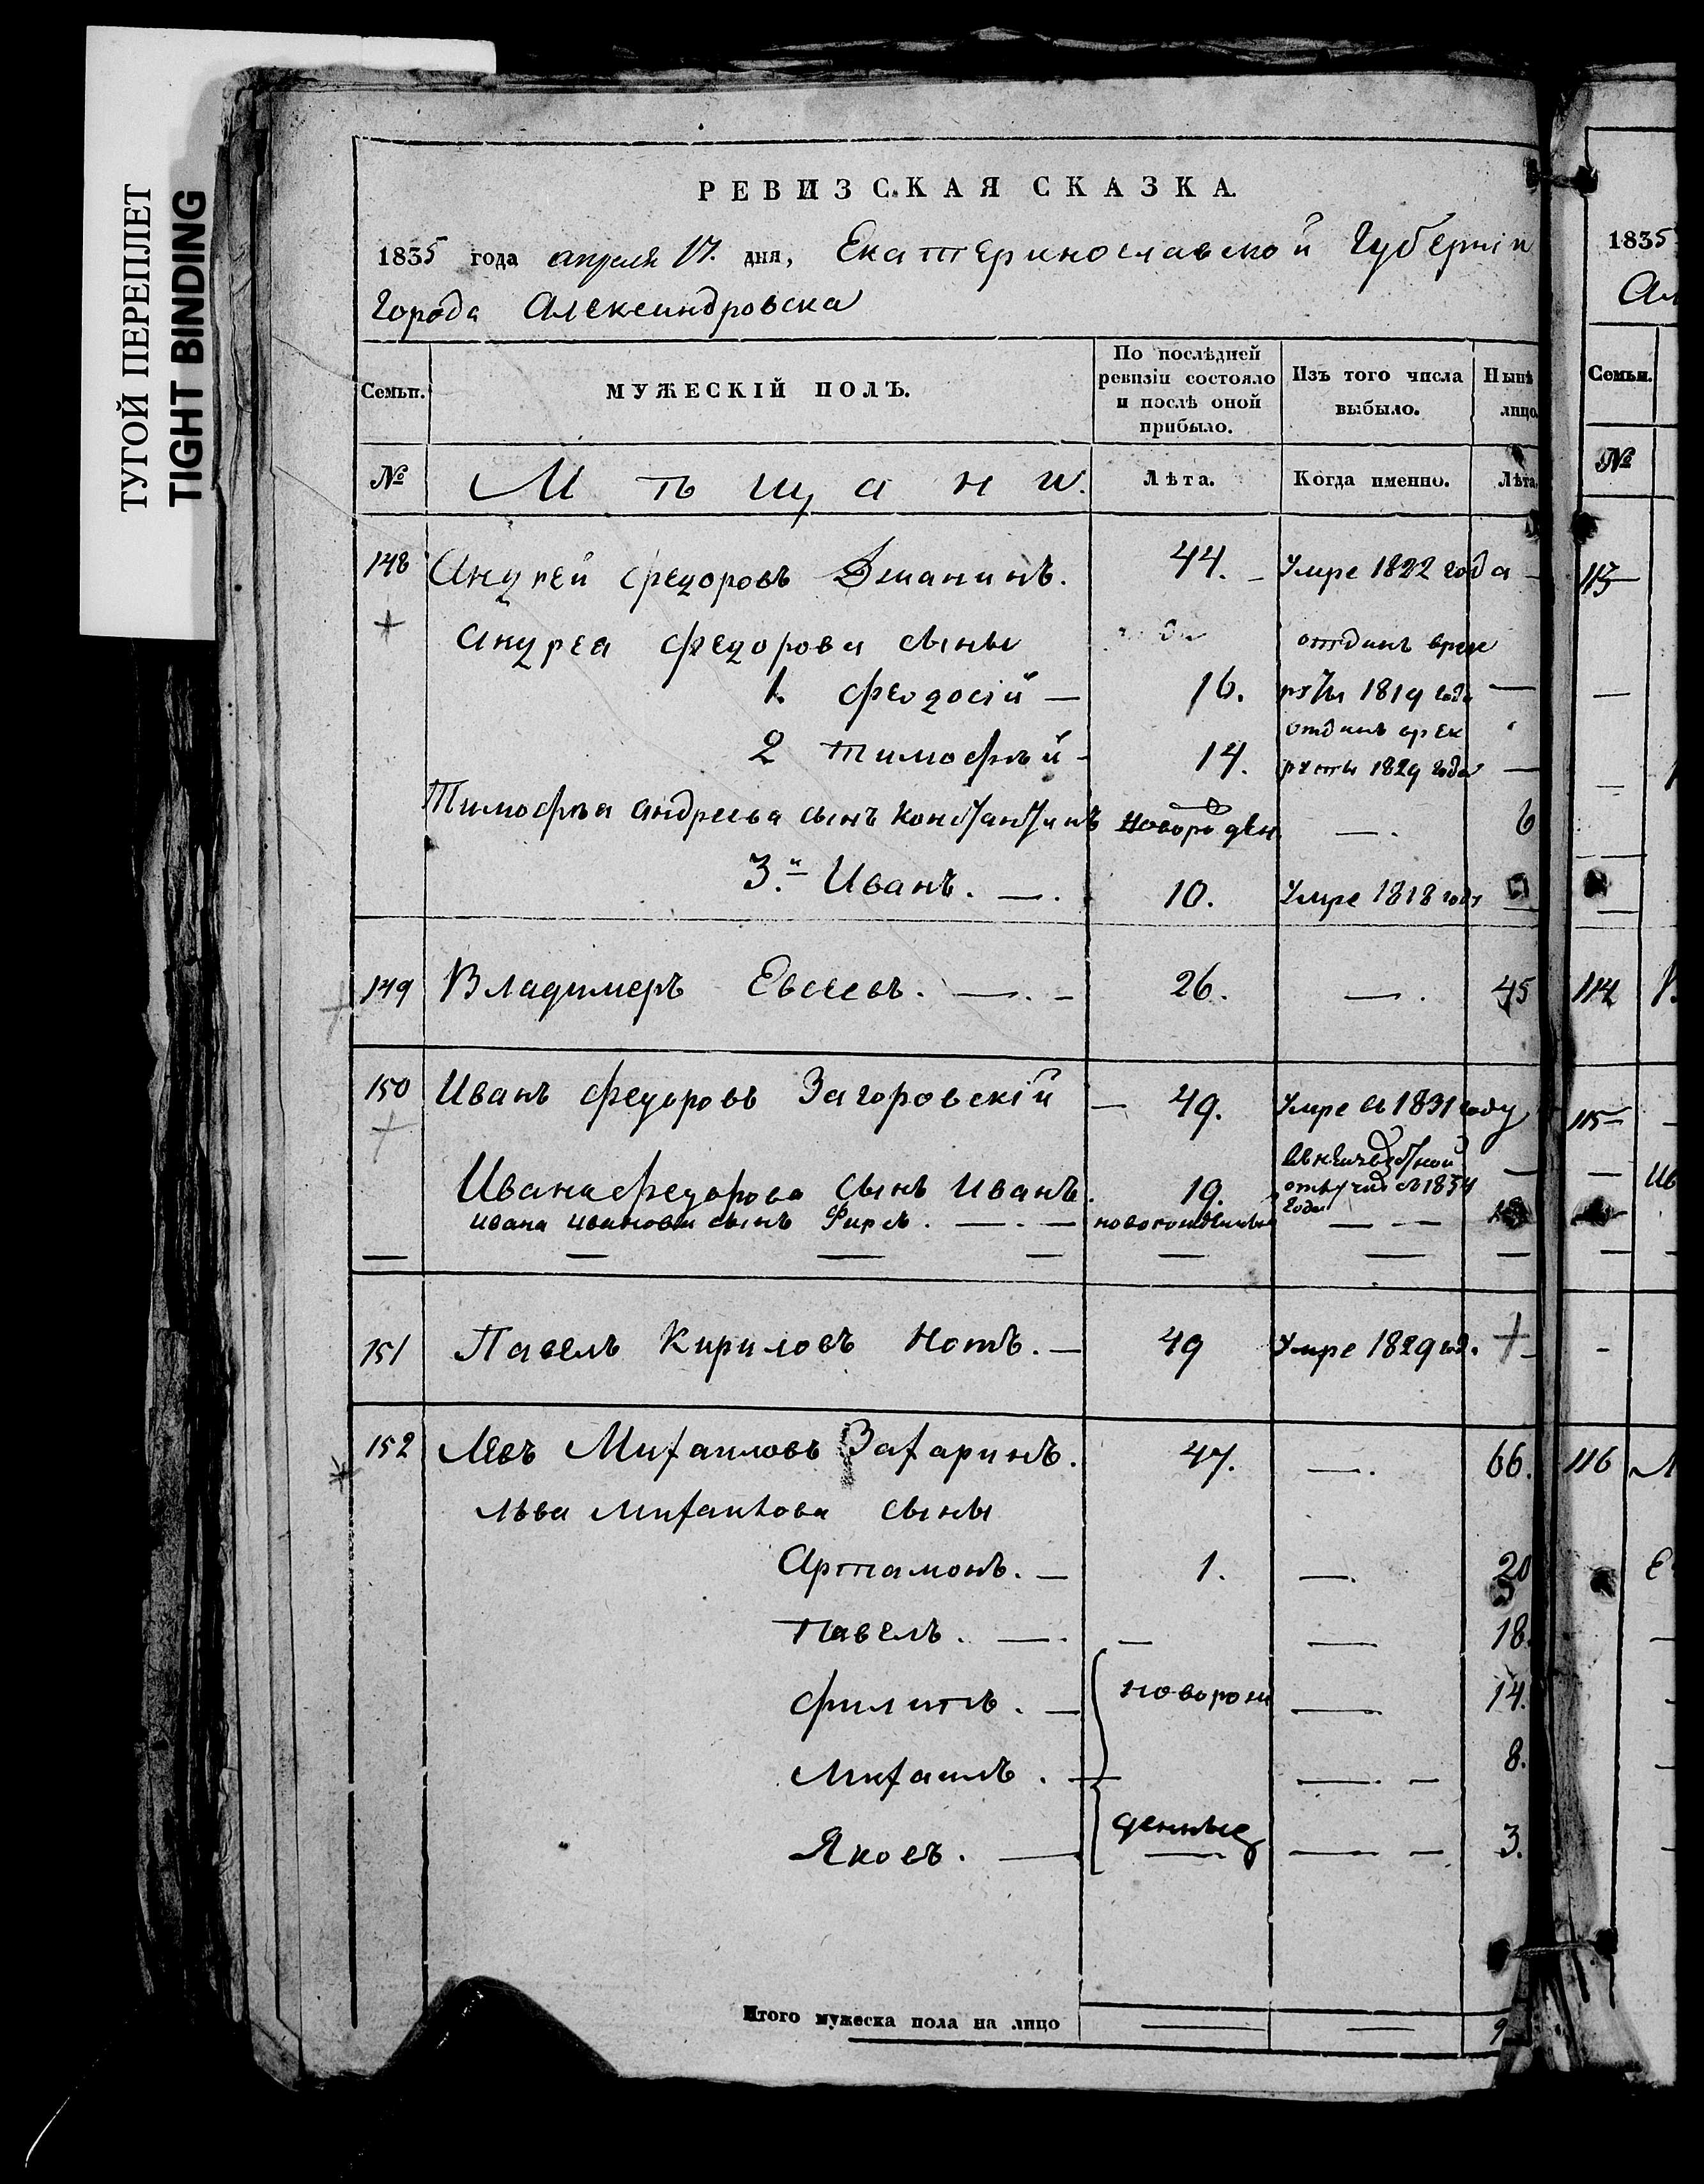 ТУГОЙ ПЕРЕПЛЕТ
TIGHT BINDING
РЕВИЗСКАЯ СКАЗКА.
1835 года апреля 17. дня, Екатеринославской Губерніи
города Александровска
Семьи. МУЖЕСКІЙ ПОЛЪ. По послѣдней ревизіи состояло и послѣ оной прибыло. Изъ того числа выбыло. Нынѣ лицо
№ Мѣщани. Лѣта. Когда именно. Лѣта
148 Андрей Федоровъ 44. Умре 1822 года
Андреа Федорова сыны
1. Феодосій 16. отданъ в рек руты 1819 года
2 Тимофѣй 14. отданъ в рек руты 1829 года
Тимофѣа Андреева сынъ Константинъ новорожден 6
3.й Иванъ. 10. Умре 1818 года
149 Владимеръ Евсеевъ. 26. 45
150 Иванъ Федоровъ Загоровскій 49. Умре въ 1831 году
Ивана Федорова сынъ Иванъ. 19. 1834 года
Ивана Иванова сынъ Фирсъ. новорожденный
151 Павелъ Кириловъ Нотъ. 49 Умре 1829 год.
152 Левъ Михаиловъ Захаринъ. 47. 66.
Льва Михаилова сыны
Артамонъ. 1. 20
Павелъ. 18.
Филипъ. новорож 14.
Михаилъ. 8.
Яковъ. денные 3.
Итого мужеска пола на лицо 9
1835
Ал
Семьи.
№
113
114
115
Ив
116